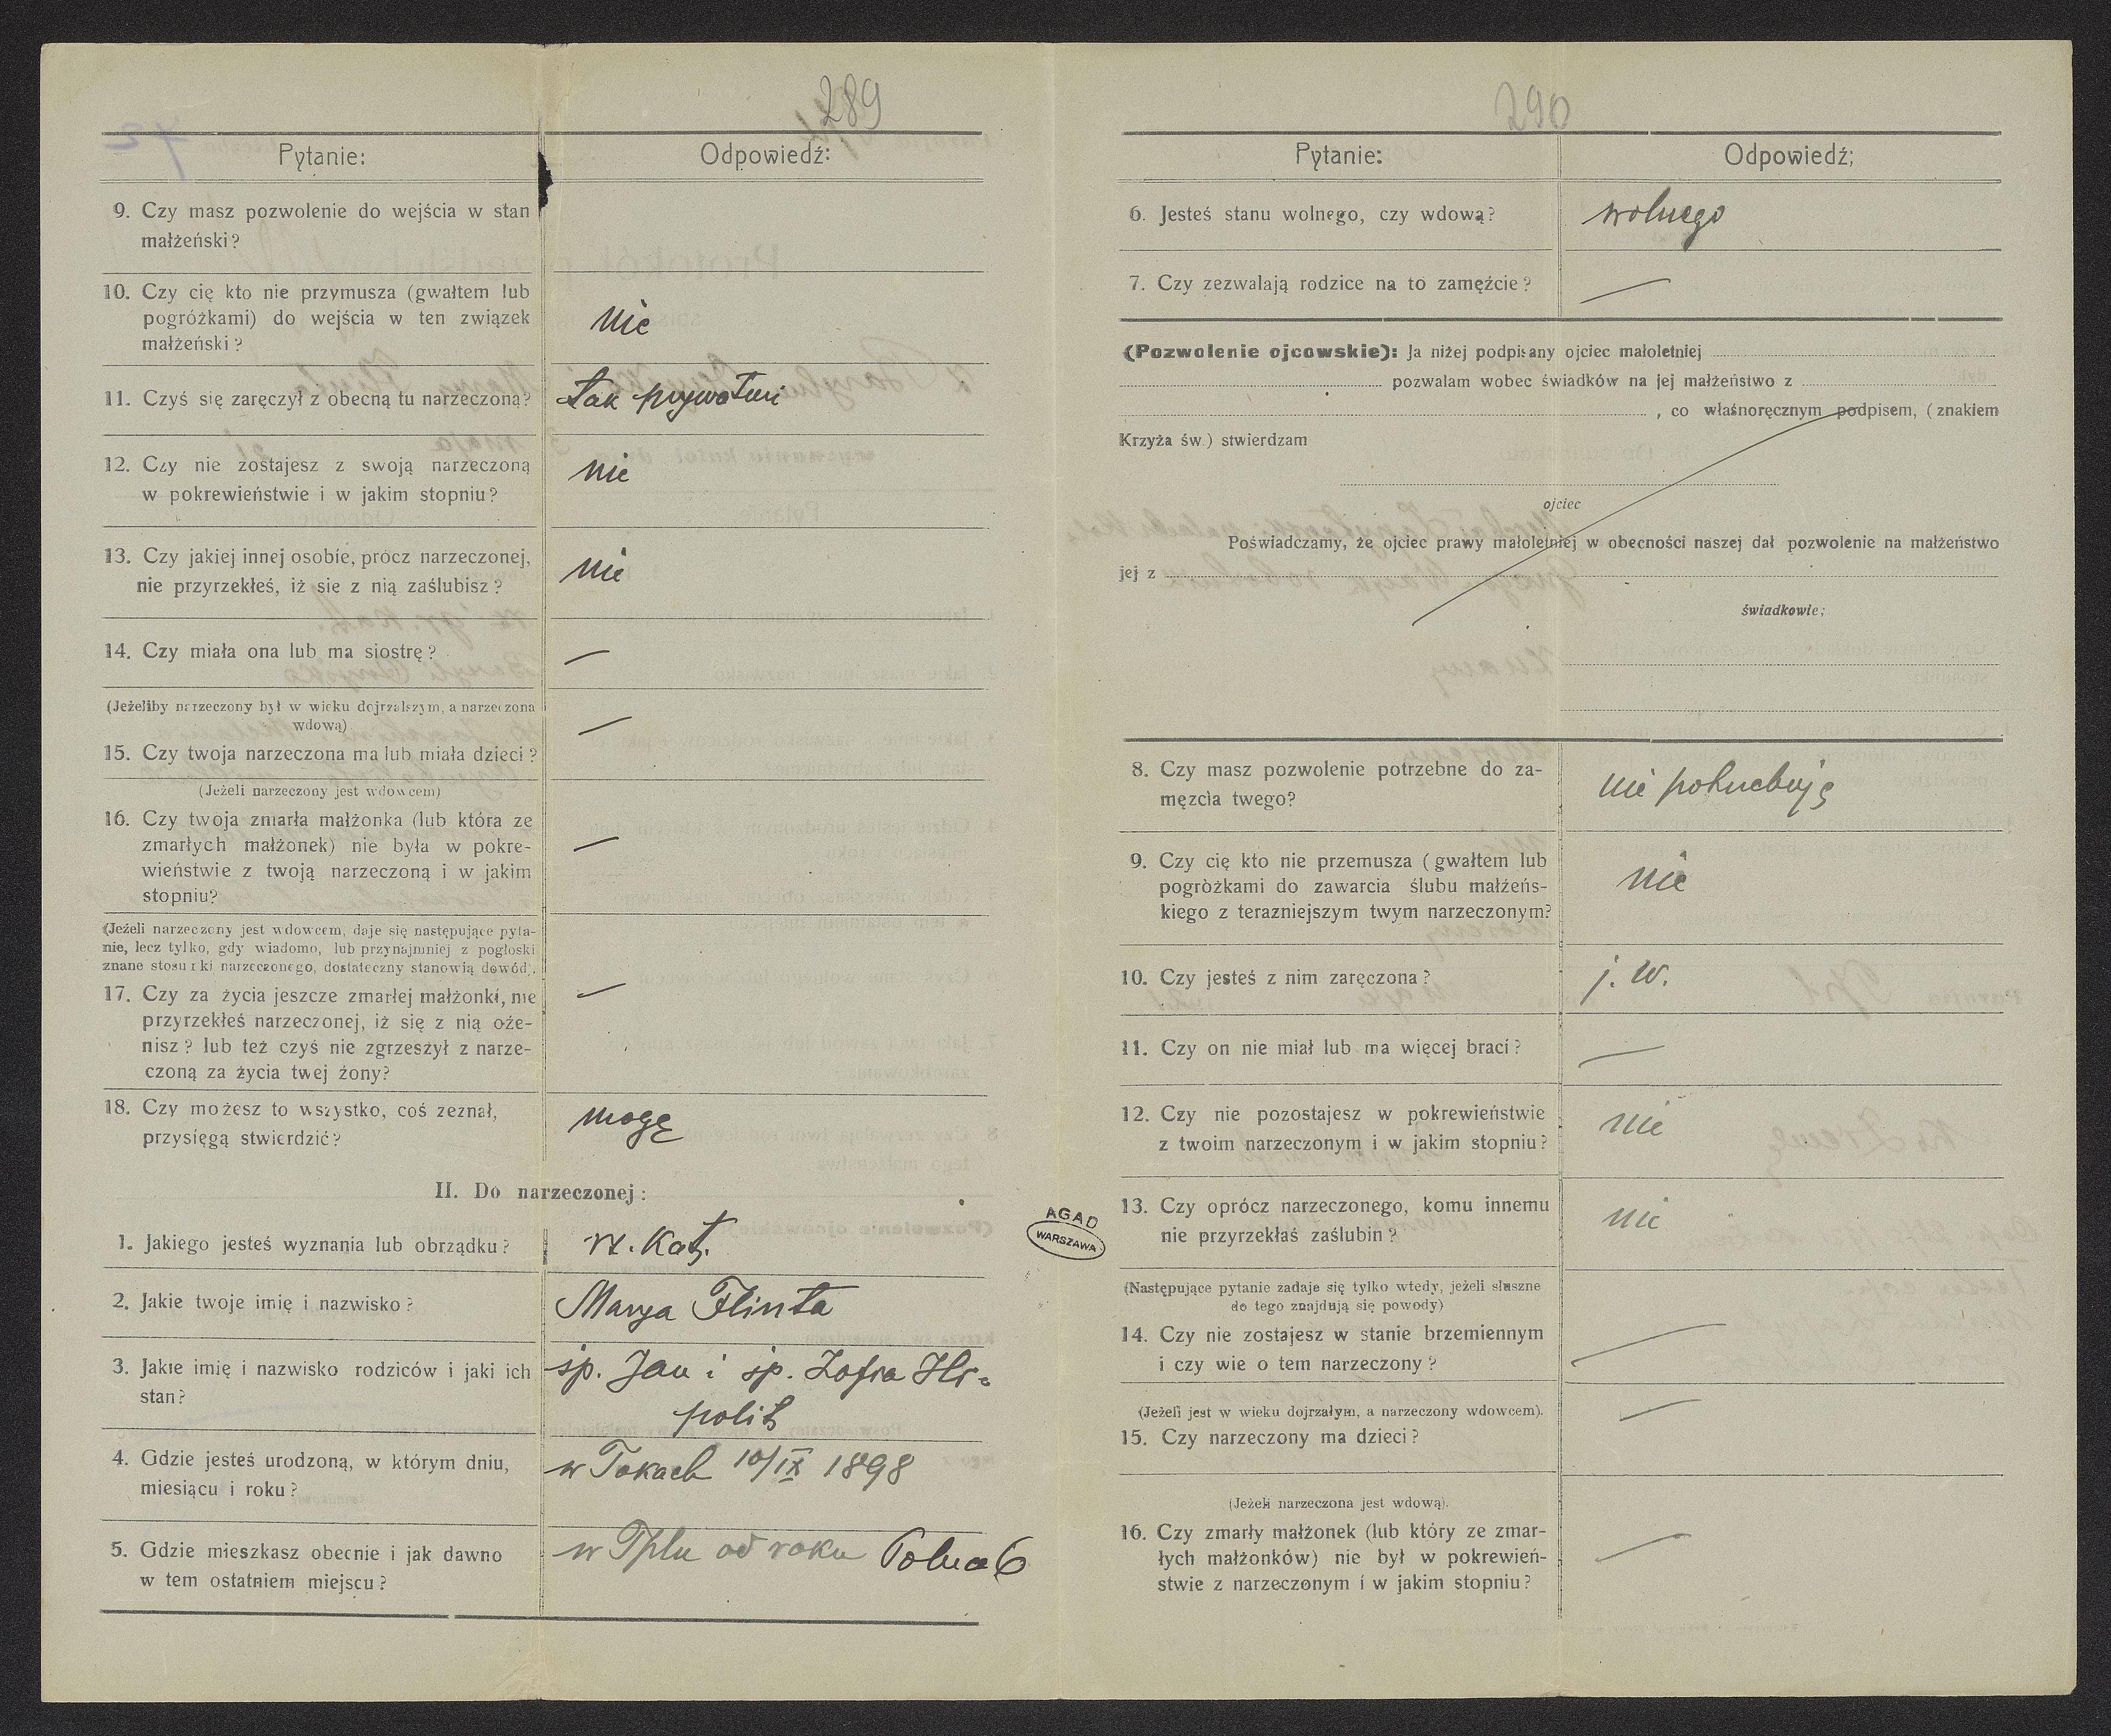 289
Pytanie:
Odpowiedź:
9. Czy masz pozwolenie do wejścia w stan
małżeński?
10. Czy cię kto nie przymusza (gwałtem lub
pogróżkami) do wejścia w ten związek
małżeński?
nie
11. Czyś się zaręczył z obecną tu narzeczoną?
tak prywatnie
12. Czy nie zostajesz z swoją narzeczoną
w pokrewieństwie i w jakim stopniu?
nie
13. Czy jakiej innej osobie, prócz narzeczonej,
nie przyrzekłeś, iż sie z nią zaślubisz?
nie
14. Czy miała ona lub ma siostrę?
—
(Jeżeliby narzeczony był w wieku dojrzalszym, a narzeczona
wdową)
15. Czy twoja narzeczona ma lub miała dzieci?
—
(Jeżeli narzeczony jest wdowcem)
16. Czy twoja zmarła małżonka (lub która ze
zmarłych małżonek) nie była w pokre-
wieństwie z twoją narzeczoną i w jakim
stopniu?
—
(Jeżeli narzeczony jest wdowcem, daje się następujące pyta-
nie, lecz tylko, gdy wiadomo, lub przynajmniej z pogłoski
znane stosunki narzeczonego, dostateczny stanowią dowód).
17. Czy za życia jeszcze zmarłej małżonki, nie
przyrzekłeś narzeczonej, iż się z nią oże-
nisz? lub też czyś nie zgrzeszył z narze-
czoną za życia twej żony?
—
18. Czy możesz to wszystko, coś zeznał,
przysięgą stwierdzić?
mogę
II. Do narzeczonej:
1. Jakiego jesteś wyznania lub obrządku?
rz. kat.
2. Jakie twoje imię i nazwisko?
Marya Flinta
3. Jakie imię i nazwisko rodziców i jaki ich
stan?
śp. Jan i śp. Zofia Hi-
polit
4. Gdzie jesteś urodzoną, w którym dniu,
miesiącu i roku?
w Tokach 10/IX 1898
5. Gdzie mieszkasz obecnie i jak dawno
w tem ostatniem miejscu?
w Tplu od roku Polna 6
AGAD
WARSZAWA
290
Pytanie:
Odpowiedź;
6. Jesteś stanu wolnego, czy wdową?
wolnego
7. Czy zezwalają rodzice na to zamęźcie?
—
(Pozwolenie ojcowskie): Ja niżej podpisany ojciec małoletniej
pozwalam wobec świadków na jej małżeństwo z
, co własnoręcznym podpisem, (znakiem
Krzyża św.) stwierdzam
ojciec
Poświadczamy, że ojciec prawy małoletniej w obecności naszej dał pozwolenie na małżeństwo
jej z
świadkowie;
8. Czy masz pozwolenie potrzebne do za-
męzcia twego?
nie potrzebuję
9. Czy cię kto nie przemusza (gwałtem lub
pogròżkami do zawarcia ślubu małźeńs-
kiego z terazniejszym twym narzeczonym?
nie
10. Czy jesteś z nim zaręczona?
j. w.
11. Czy on nie miał lub ma więcej braci?
—
12. Czy nie pozostajesz w pokrewieństwie
z twoim narzeczonym i w jakim stopniu?
nie
13. Czy oprócz narzeczonego, komu innemu
nie przyrzekłaś zaślubin?
nie
(Następujące pytanie zadaje się tylko wtedy, jeżeli słuszne
do tego znajdują się powody)
14. Czy nie zostajesz w stanie brzemiennym
i czy wie o tem narzeczony?
—
(Jeżeli jest w wieku dojrzałym, a narzeczony wdowcem).
15. Czy narzeczony ma dzieci?
—
(Jeżeli narzeczona jest wdową).
16. Czy zmarły małżonek (lub który ze zmar-
łych małżonków) nie był w pokrewień-
stwie z narzeczonym i w jakim stopniu?
—